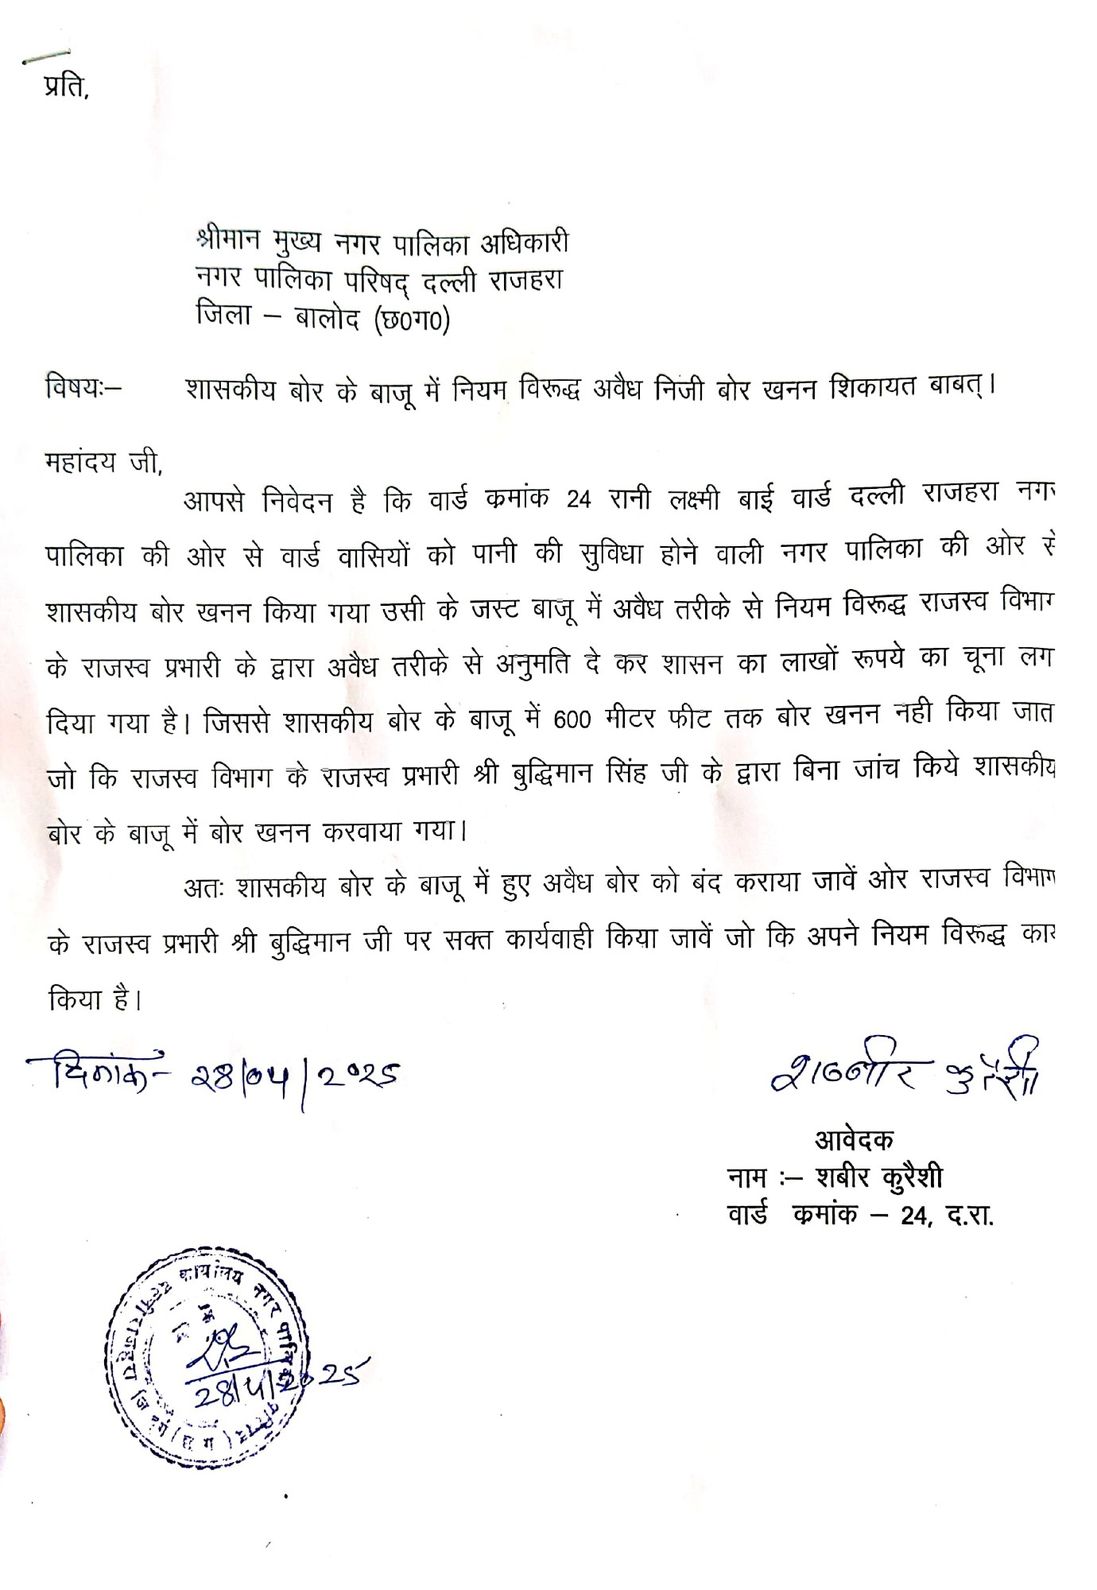 प्रति,
श्रीमान मुख्य नगर पालिका अधिकारी
नगर पालिका परिषद् दल्ली राजहरा
जिला – बालोद (छ0ग0)
विषयः– शासकीय बोर के बाजू में नियम विरूद्ध अवैध निजी बोर खनन शिकायत बाबत्।
महांदय जी,
आपसे निवेदन है कि वार्ड क्रमांक 24 रानी लक्ष्मी बाई वार्ड दल्ली राजहरा नगर
पालिका की ओर से वार्ड वासियों को पानी की सुविधा होने वाली नगर पालिका की ओर से
शासकीय बोर खनन किया गया उसी के जस्ट बाजू में अवैध तरीके से नियम विरूद्ध राजस्व विभाग
के राजस्व प्रभारी के द्वारा अवैध तरीके से अनुमति दे कर शासन का लाखों रूपये का चूना लग
दिया गया है। जिससे शासकीय बोर के बाजू में 600 मीटर फीट तक बोर खनन नही किया जात
जो कि राजस्व विभाग के राजस्व प्रभारी श्री बुद्धिमान सिंह जी के द्वारा बिना जांच किये शासकीय
बोर के बाजू में बोर खनन करवाया गया।
अतः शासकीय बोर के बाजू में हुए अवैध बोर को बंद कराया जावें ओर राजस्व विभाग
के राजस्व प्रभारी श्री बुद्धिमान जी पर सक्त कार्यवाही किया जावें जो कि अपने नियम विरूद्ध कार
किया है।
दिनांक- 28/04/2025
शब्बीर कुरैशी
आवेदक
नाम :– शबीर कुरैशी
वार्ड क्रमांक – 24, द.रा.
कार्यालय नगर पालिका परिषद
28/4/2025